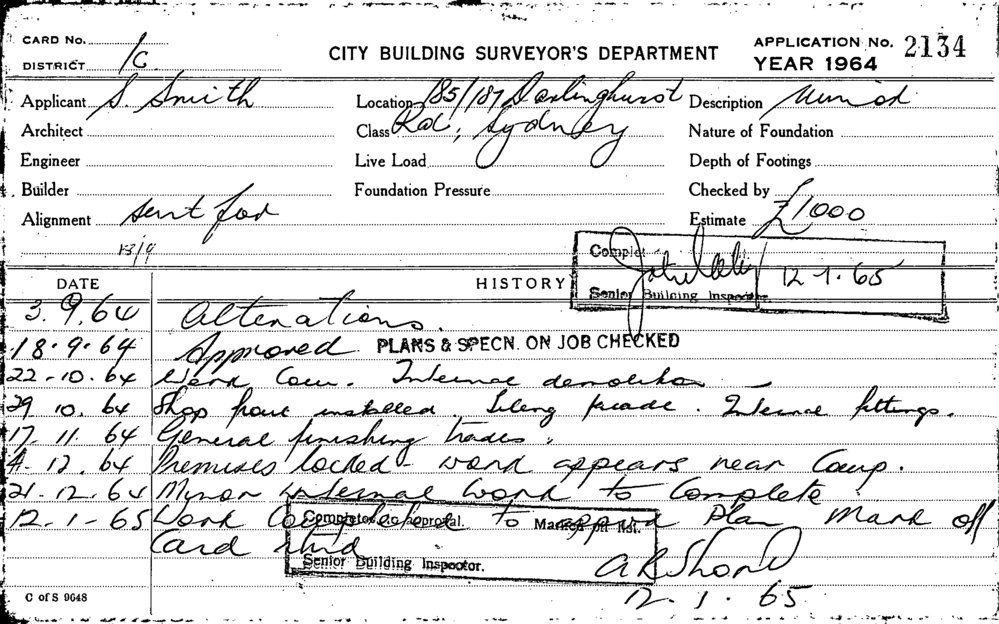 CARD No.
DISTRICT 1C
CITY BUILDING SURVEYOR'S DEPARTMENT
APPLICATION No. 2134
YEAR 1964
Applicant S. Smith
Location 185/187 Darlinghurst
Description Minor
Architect
Class Rd, Sydney
Nature of Foundation
Engineer
Live Load
Depth of Footings
Builder
Foundation Pressure
Checked by
Alignment sent for
Estimate £1000
13/9
Complet
12.1.65
Senior Building Inspector.
DATE
HISTORY
3.9.64 Alterations.
18.9.64 Approved PLANS & SPECN. ON JOB CHECKED
22-10.64 Work Com. Internal demolition
29.10.64 Shop front installed. Tileing facade. Internal fittings.
17.11.64 General finishing trades.
4.12.64 Premises locked - work appears near Comp.
21.12.64 Minor internal work to complete
12-1-65 Work Completed to approved Plan Mark off
Card
Completed to approval. Marked off list.
Senior Building Inspector.
12.1.65
C of S 9648